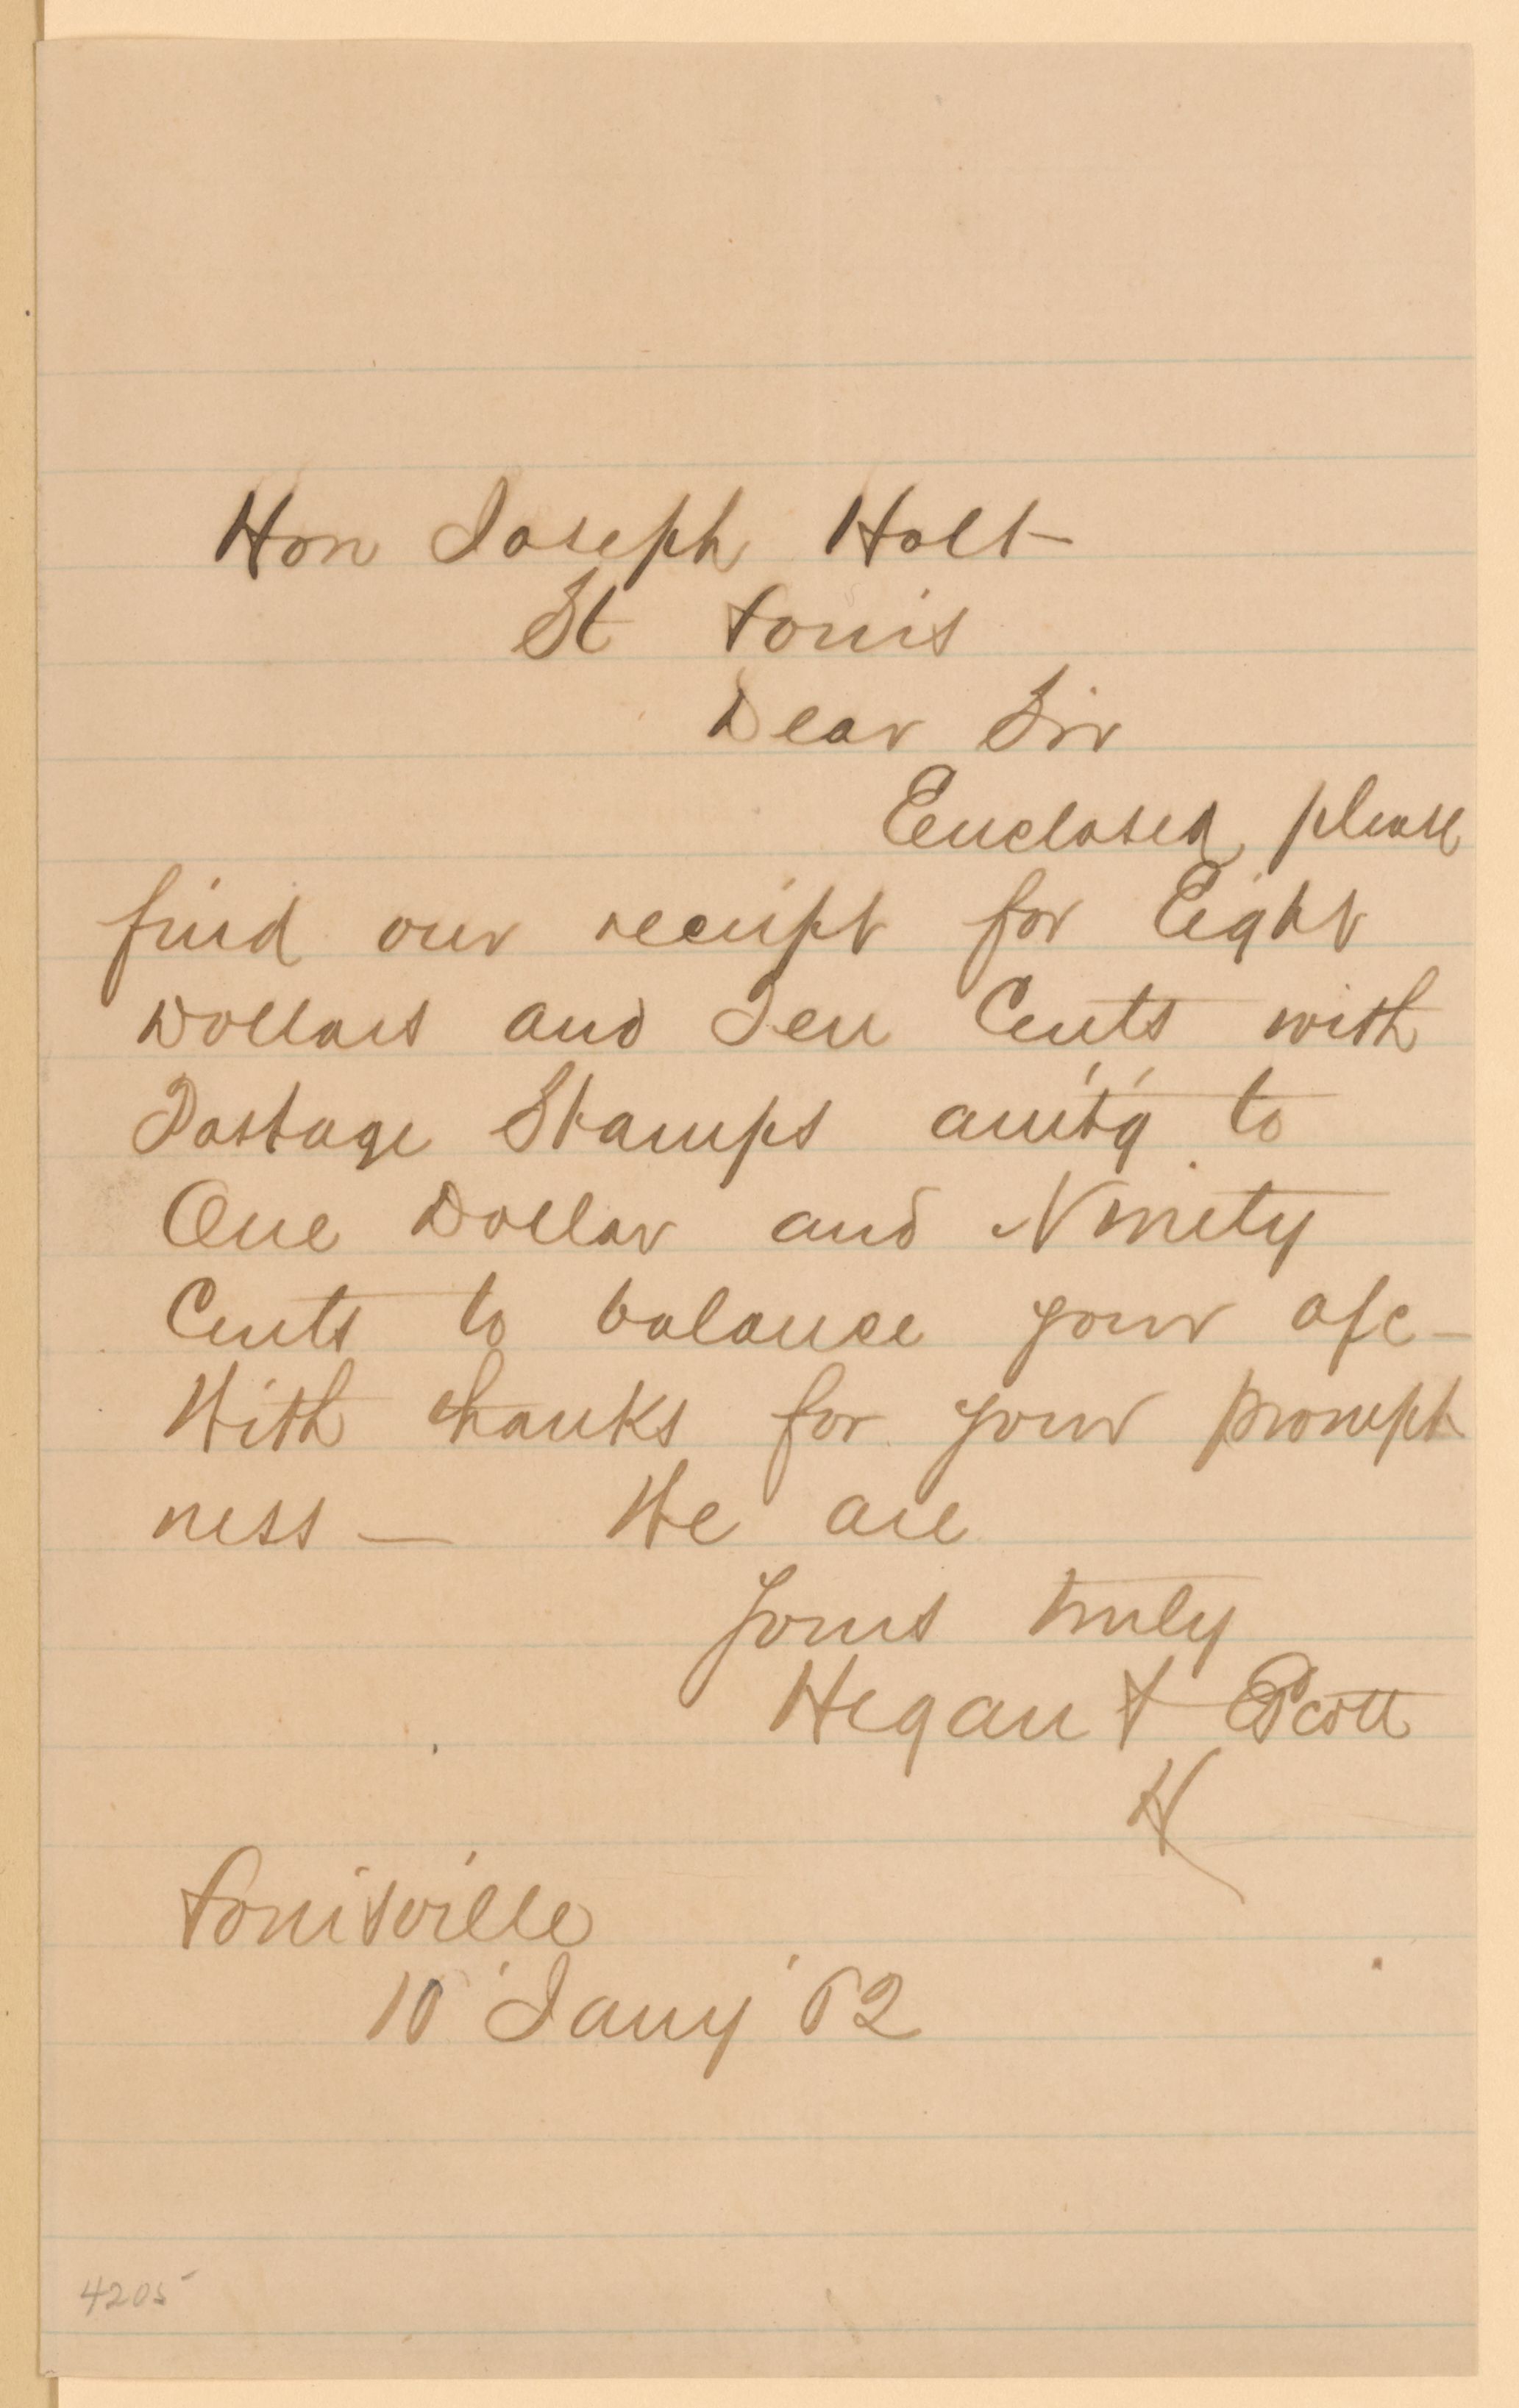 Hon Joseph Holt
St Louis
Dear Sir
Enclosed please
find our receipt for Eight
Dollars and Ten Cents with
Postage Stamps amt'g to
One Dollar and Ninety
Cents to balance your a/c —
With thanks for your prompt
ness — We are
Yours truly
Hegan & Scott
H
Louisville
10 Jany '62
4205